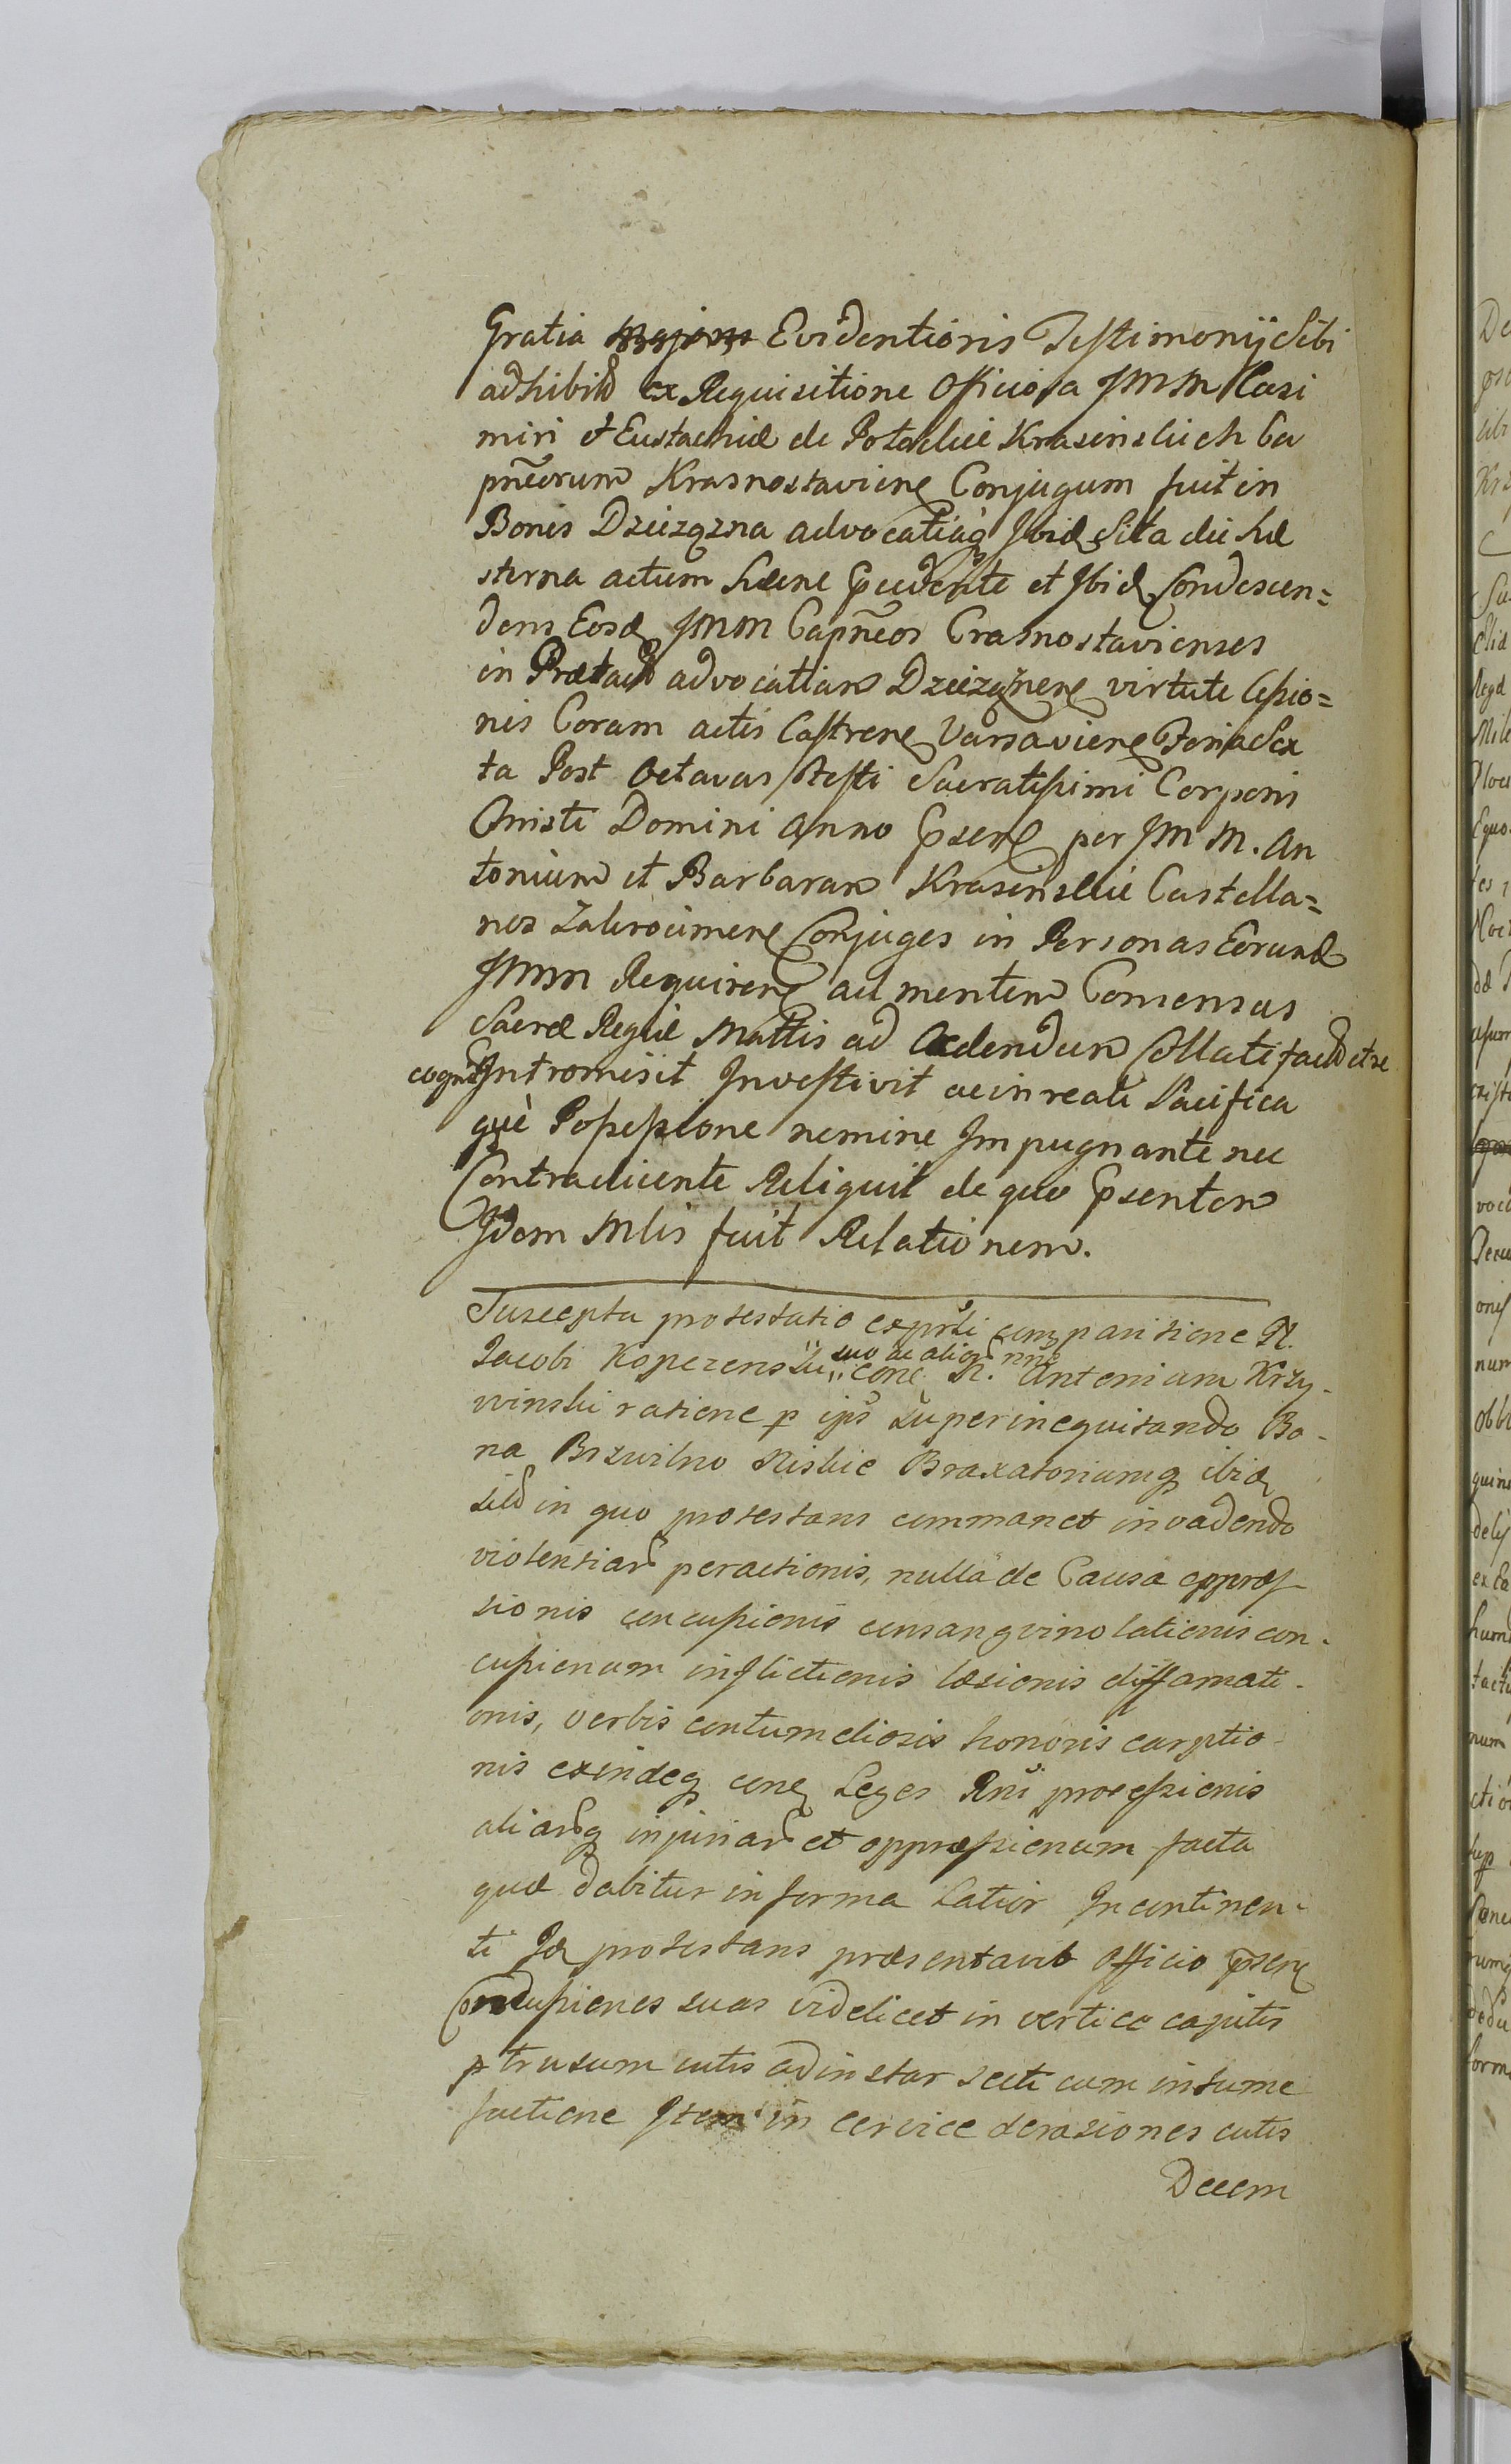 Gratia Evidentioris Testimonij Sibi
adhibito ex Requisitione Officiosa JMM Casi
miri et Eustachiæ de Potockie Krasinskich Ca
pneorum Krasnostaviene Conjugum fuit in
Bonis Dziezązna advocatiaq Ibid sita die he
sterna actum hunc et Ibid Condescen=
dens Eosd JMM Capneos Crasnostavienses
in advocatiam virtute Cessio=
nis Coram actis Castrene Varsaviene Feria Sex
ta Post Octavas Festi Sacratissimi Corporis
Christi Domini anno psene per JM M. An
tonium et Barbaram Krasinskie Castella=
nos Zakrocimene Conjuges in Personas Eorund
JMM Requirene ad mentem Consensus
Sacræ Regiæ Mattis ad Cedendum Collati facto et re
cognito Intromisit Investivit ac in reali Pacifica
què Possessione nemine Impugnante nec
Contradicente Reliquit de quo psentem
Idem Mlis fuit Relationem.
Suscepta protestatio comparitione N.
Jacobi suo ac alior nne cone N. Antonium Krzy-
winski ratione p ips superinequitando Bo-
na Brzwilno Niskie Braxatoriumq ibid
sito in quo protestans commanet invadendo
violentiar peractionis, nulla de Causa oppres-
sionis concussionis consangvinolationis con-
cussionum inflictionis læsionis diffamati-
onis, verbis contumeliosis honoris carptio
nis exindeq cone Leges Rni processionis
aliarq injuriar et oppressionum facta
quæ dabitur in forma Latior Incontinen-
ti Id protestans præsentavit Officio psene
Concussiones suas videlicet in vertice capitis
p trusum cutis ad instar secti cum intume
factione Item in cervice derasiones cutis
Decem